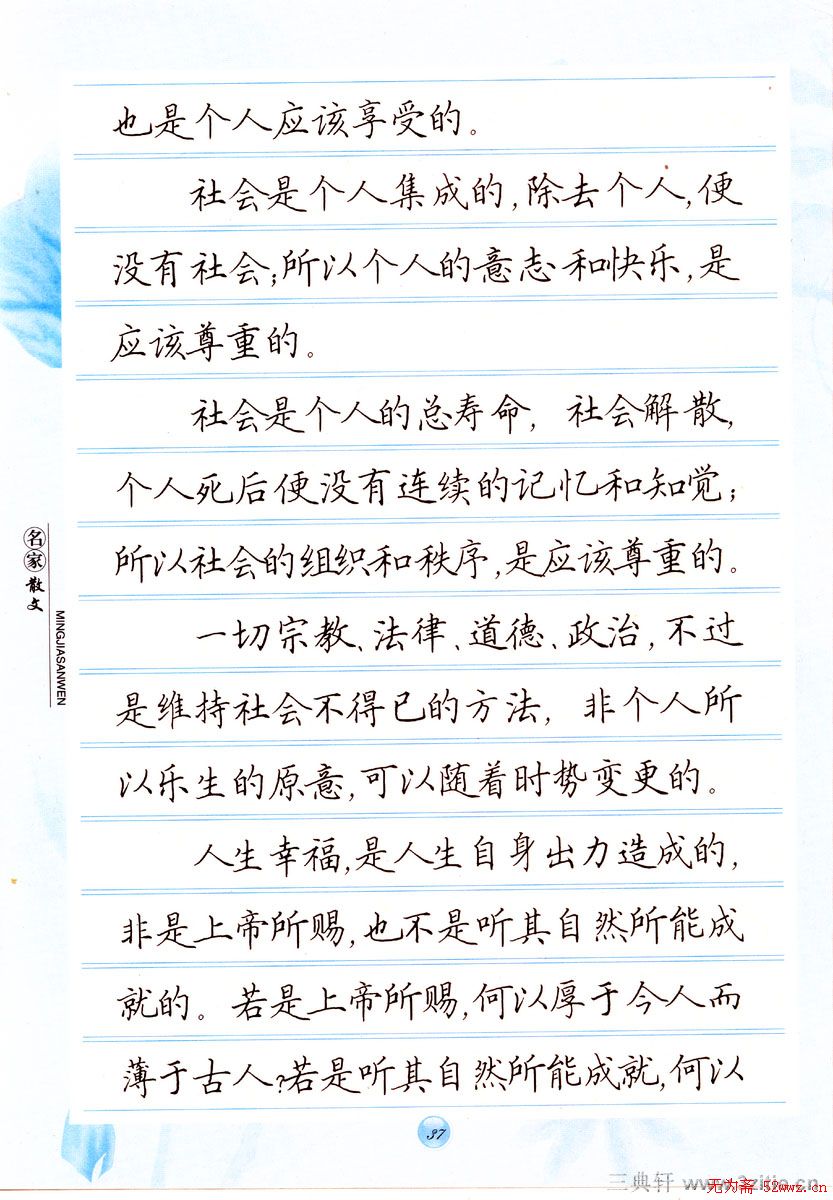 也是个人应该享受的。
社会是个人集成的,除去个人,便
没有社会;所以个人的意志和快乐,是
应该尊重的。
社会是个人的总寿命，社会解散,
个人死后便没有连续的记忆和知觉;
所以社会的组织和秩序,是应该尊重的。
一切宗教、法律、道德、政治,不过
是维持社会不得已的方法，非个人所
以乐生的原意,可以随着时势变更的。
人生幸福,是人生自身出力造成的,
非是上帝所赐,也不是听其自然所能成
就的。若是上帝所赐,何以厚于今人而
薄于古人?若是听其自然所能成就,何以
名家散文
MINGJIASANWEN
37
三典轩
无为斋 52wwz.cn